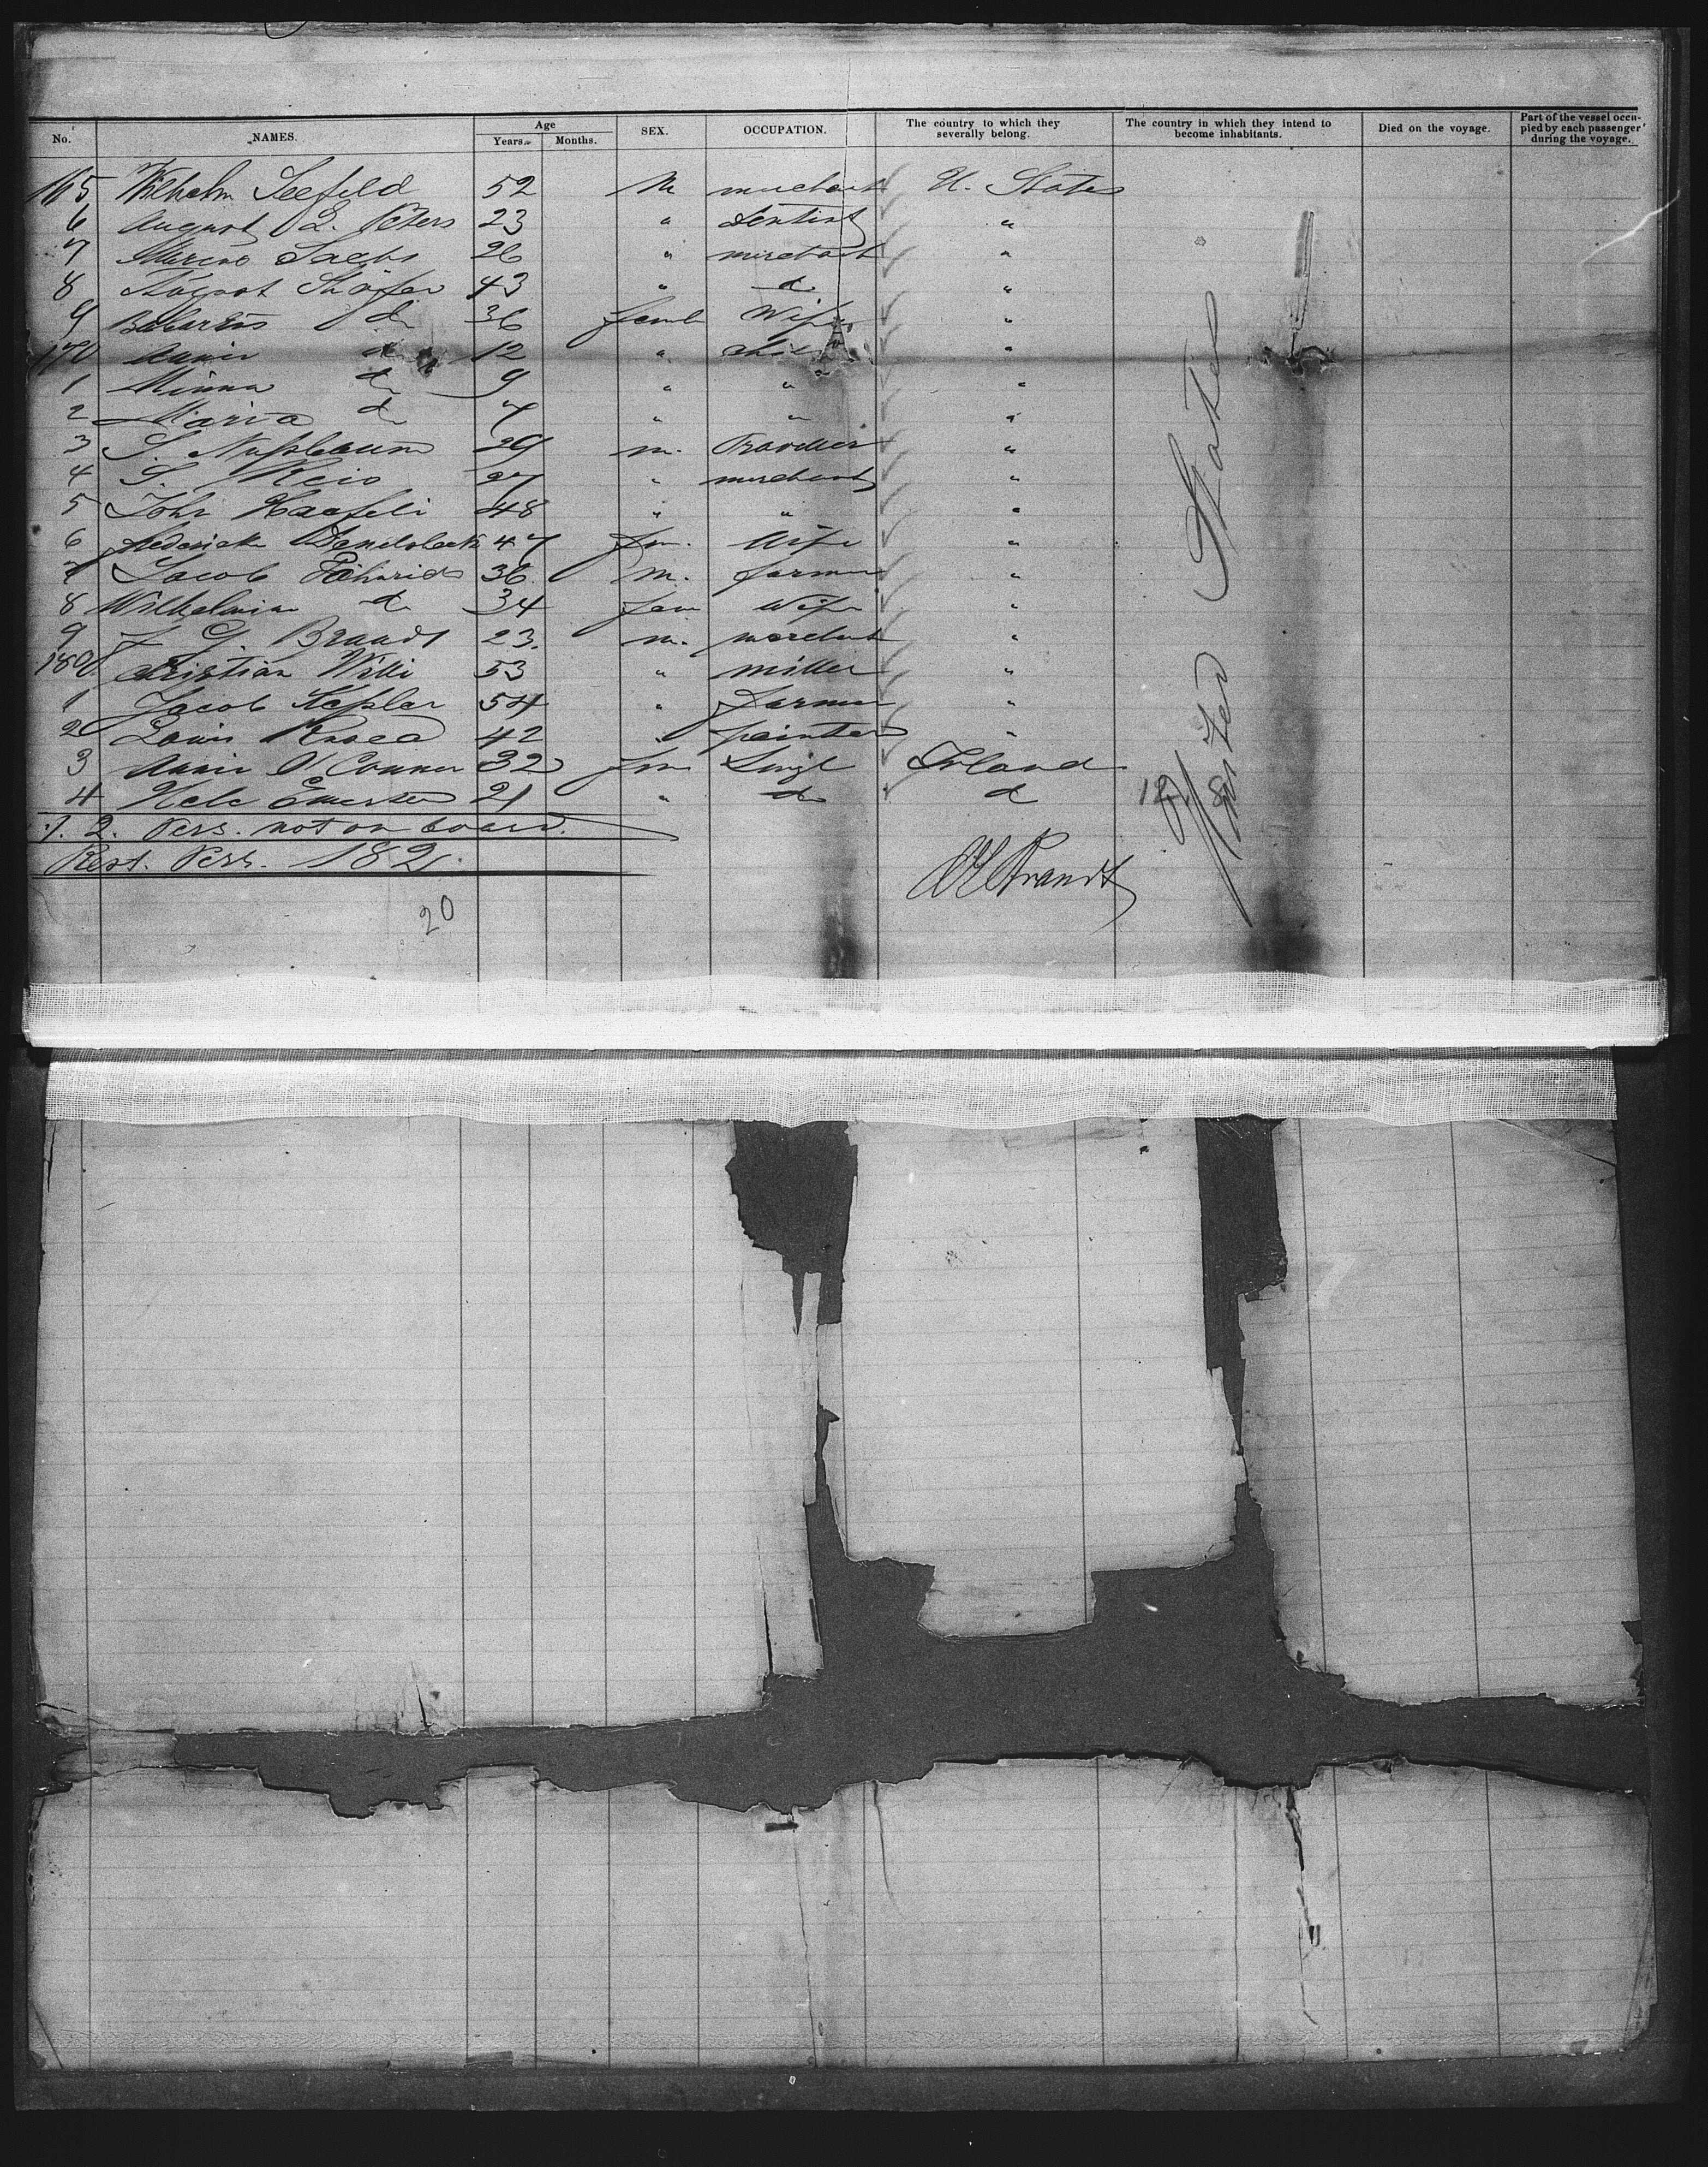 No. NAMES. Age Years. Months. SEX. OCCUPATION. The country to which they severally belong. The country in which they intend to become inhabitants. Died on the voyage. Part of the vessel occupied by each passenger during the voyage.
165 Wilhelm Seefeld 52 M merchant U. States
6 August L. Peters 23 " Dentist "
7 Sachs 26 " merchant "
8 August Schäfer 43 " do "
9 do 36 Wife "
170 Annie do 12 " child "
1 Minna do 9 " " "
2 Maria do 7 " " "
3 S. Nussbaum 29 m. Traveller "
4 S. Reis 27 " merchant "
5 John Haefeli 48 " " "
6 47 fm. Wife "
7 Jacob 36 m. farmer "
8 Wilhelmine do 34 fem Wife "
9 J. G. Brandt 23. m. merchant "
180 Christian Willi 53 " miller "
1 Jacob Kepler 54 " farmer "
2 Louis 42 " painter "
3 Annie O'Conner 32 fm Single Irland
4 21 " do do
United States
./. 2. Pers. not on board.
Rest. Pers. 182.
Brandt
20